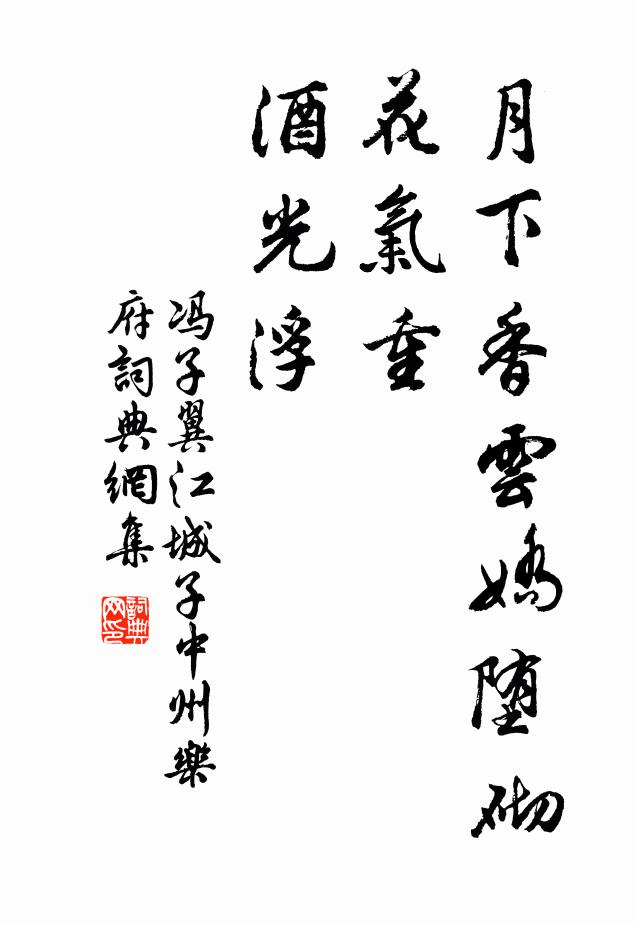 月下香雲嬌堕砌
花氣重
酒光浮
冯子翼江城子中州樂
府詞典網集
詞典
网印